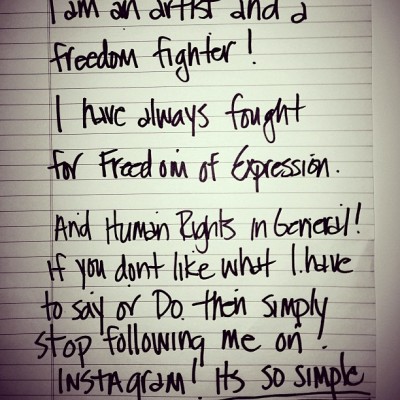 I am an artist and a
freedom fighter!
I have always fought
for Freedom of Expression.
And Human Rights in General!
if you dont like what I have
to say or Do then simply
stop following me on
INSTAgram! Its so simple